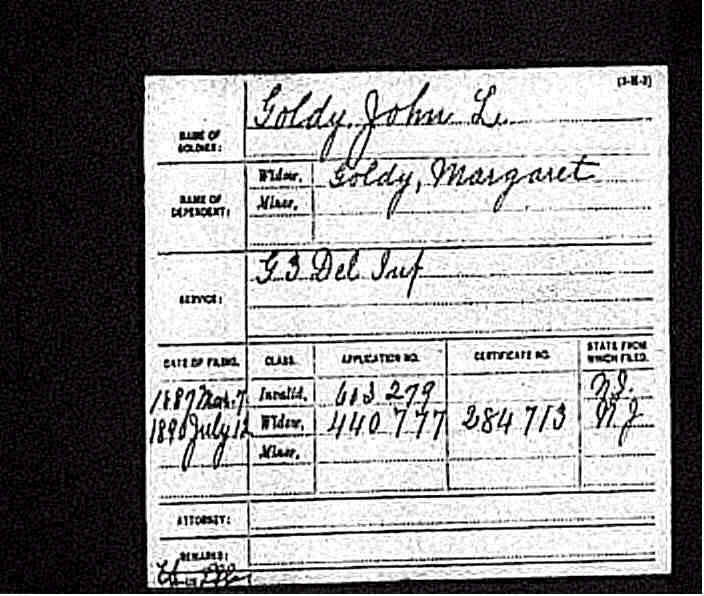 (3-H-3)
NAME OF SOLDIER: Goldy, John L.
NAME OF DEPENDENT: Widow, Goldy, Margaret
Minor,
SERVICE: G 3 Del Inf
DATE OF FILING. CLASS. APPLICATION NO. CERTIFICATE NO. STATE FROM WHICH FILED.
1887 Mar. 7 Invalid, 603 279 N.J.
1890 July 12 Widow, 440 777 284 713 N J
Minor,
ATTORNEY:
REMARKS: